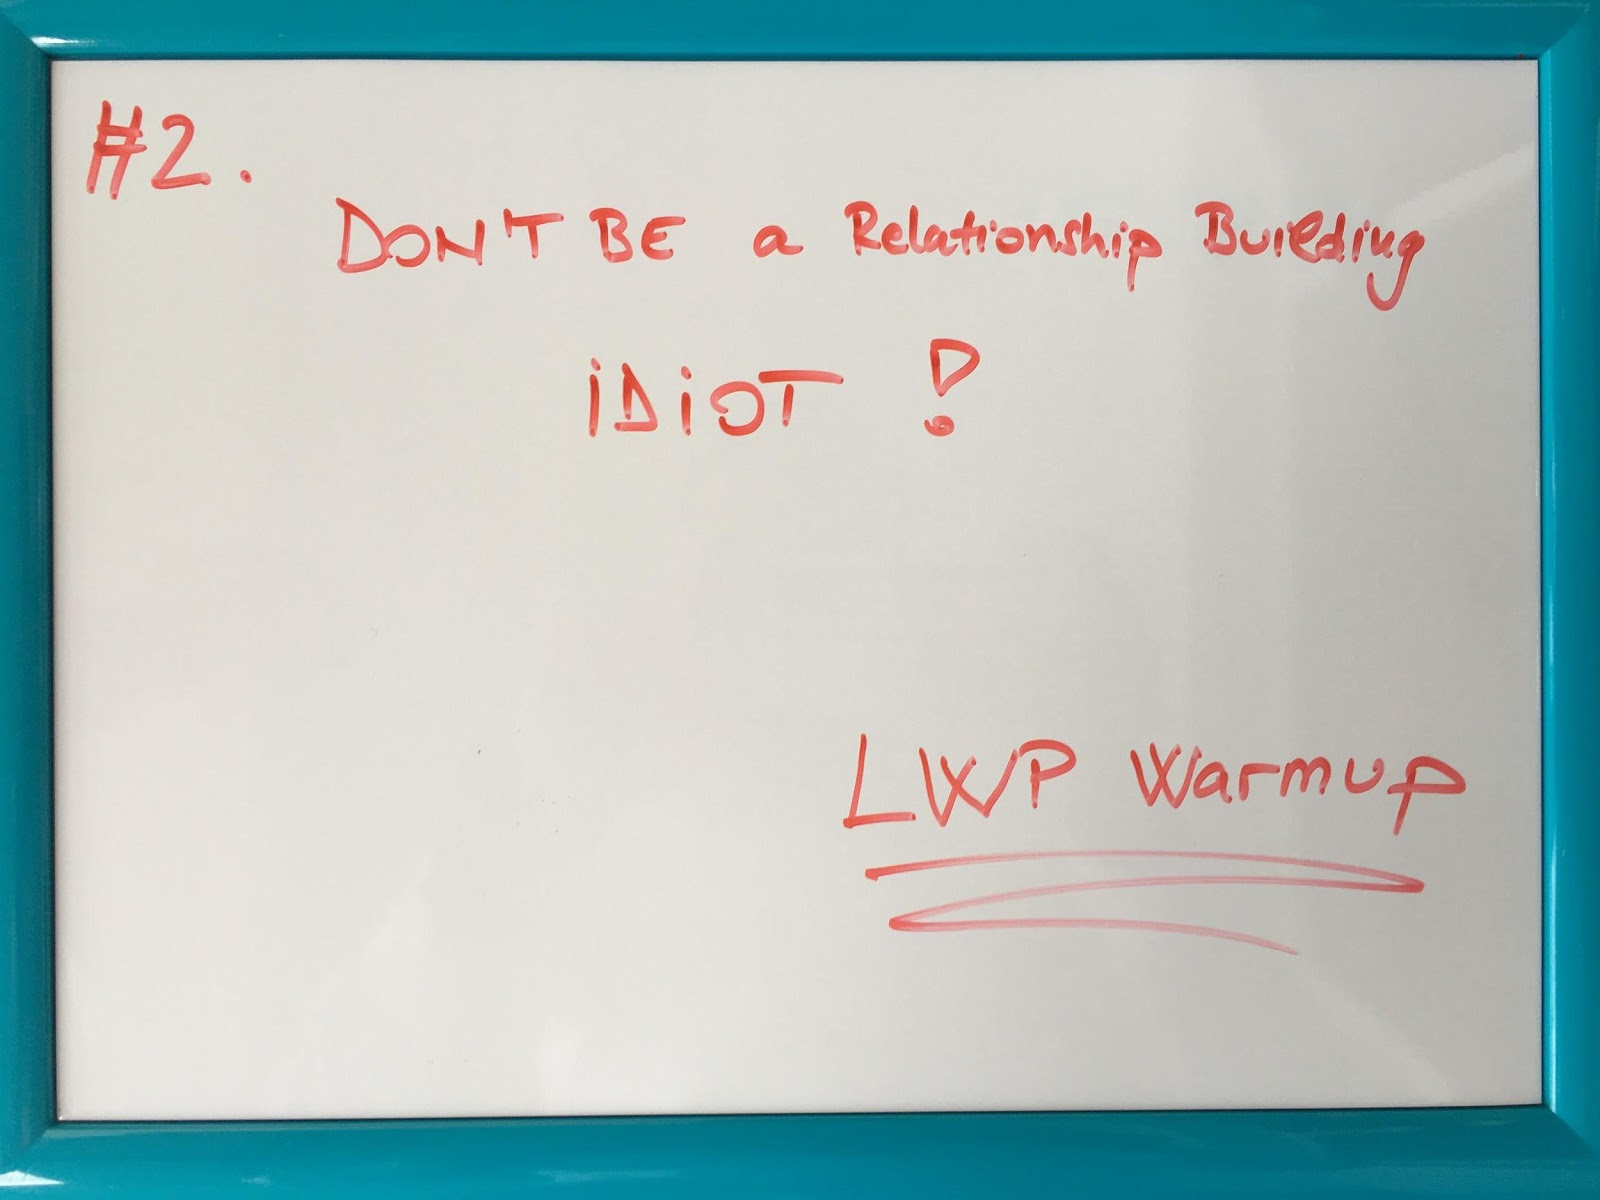 #2.
DON'T BE a Relationship Building
iDiOT !
LWP Warmup